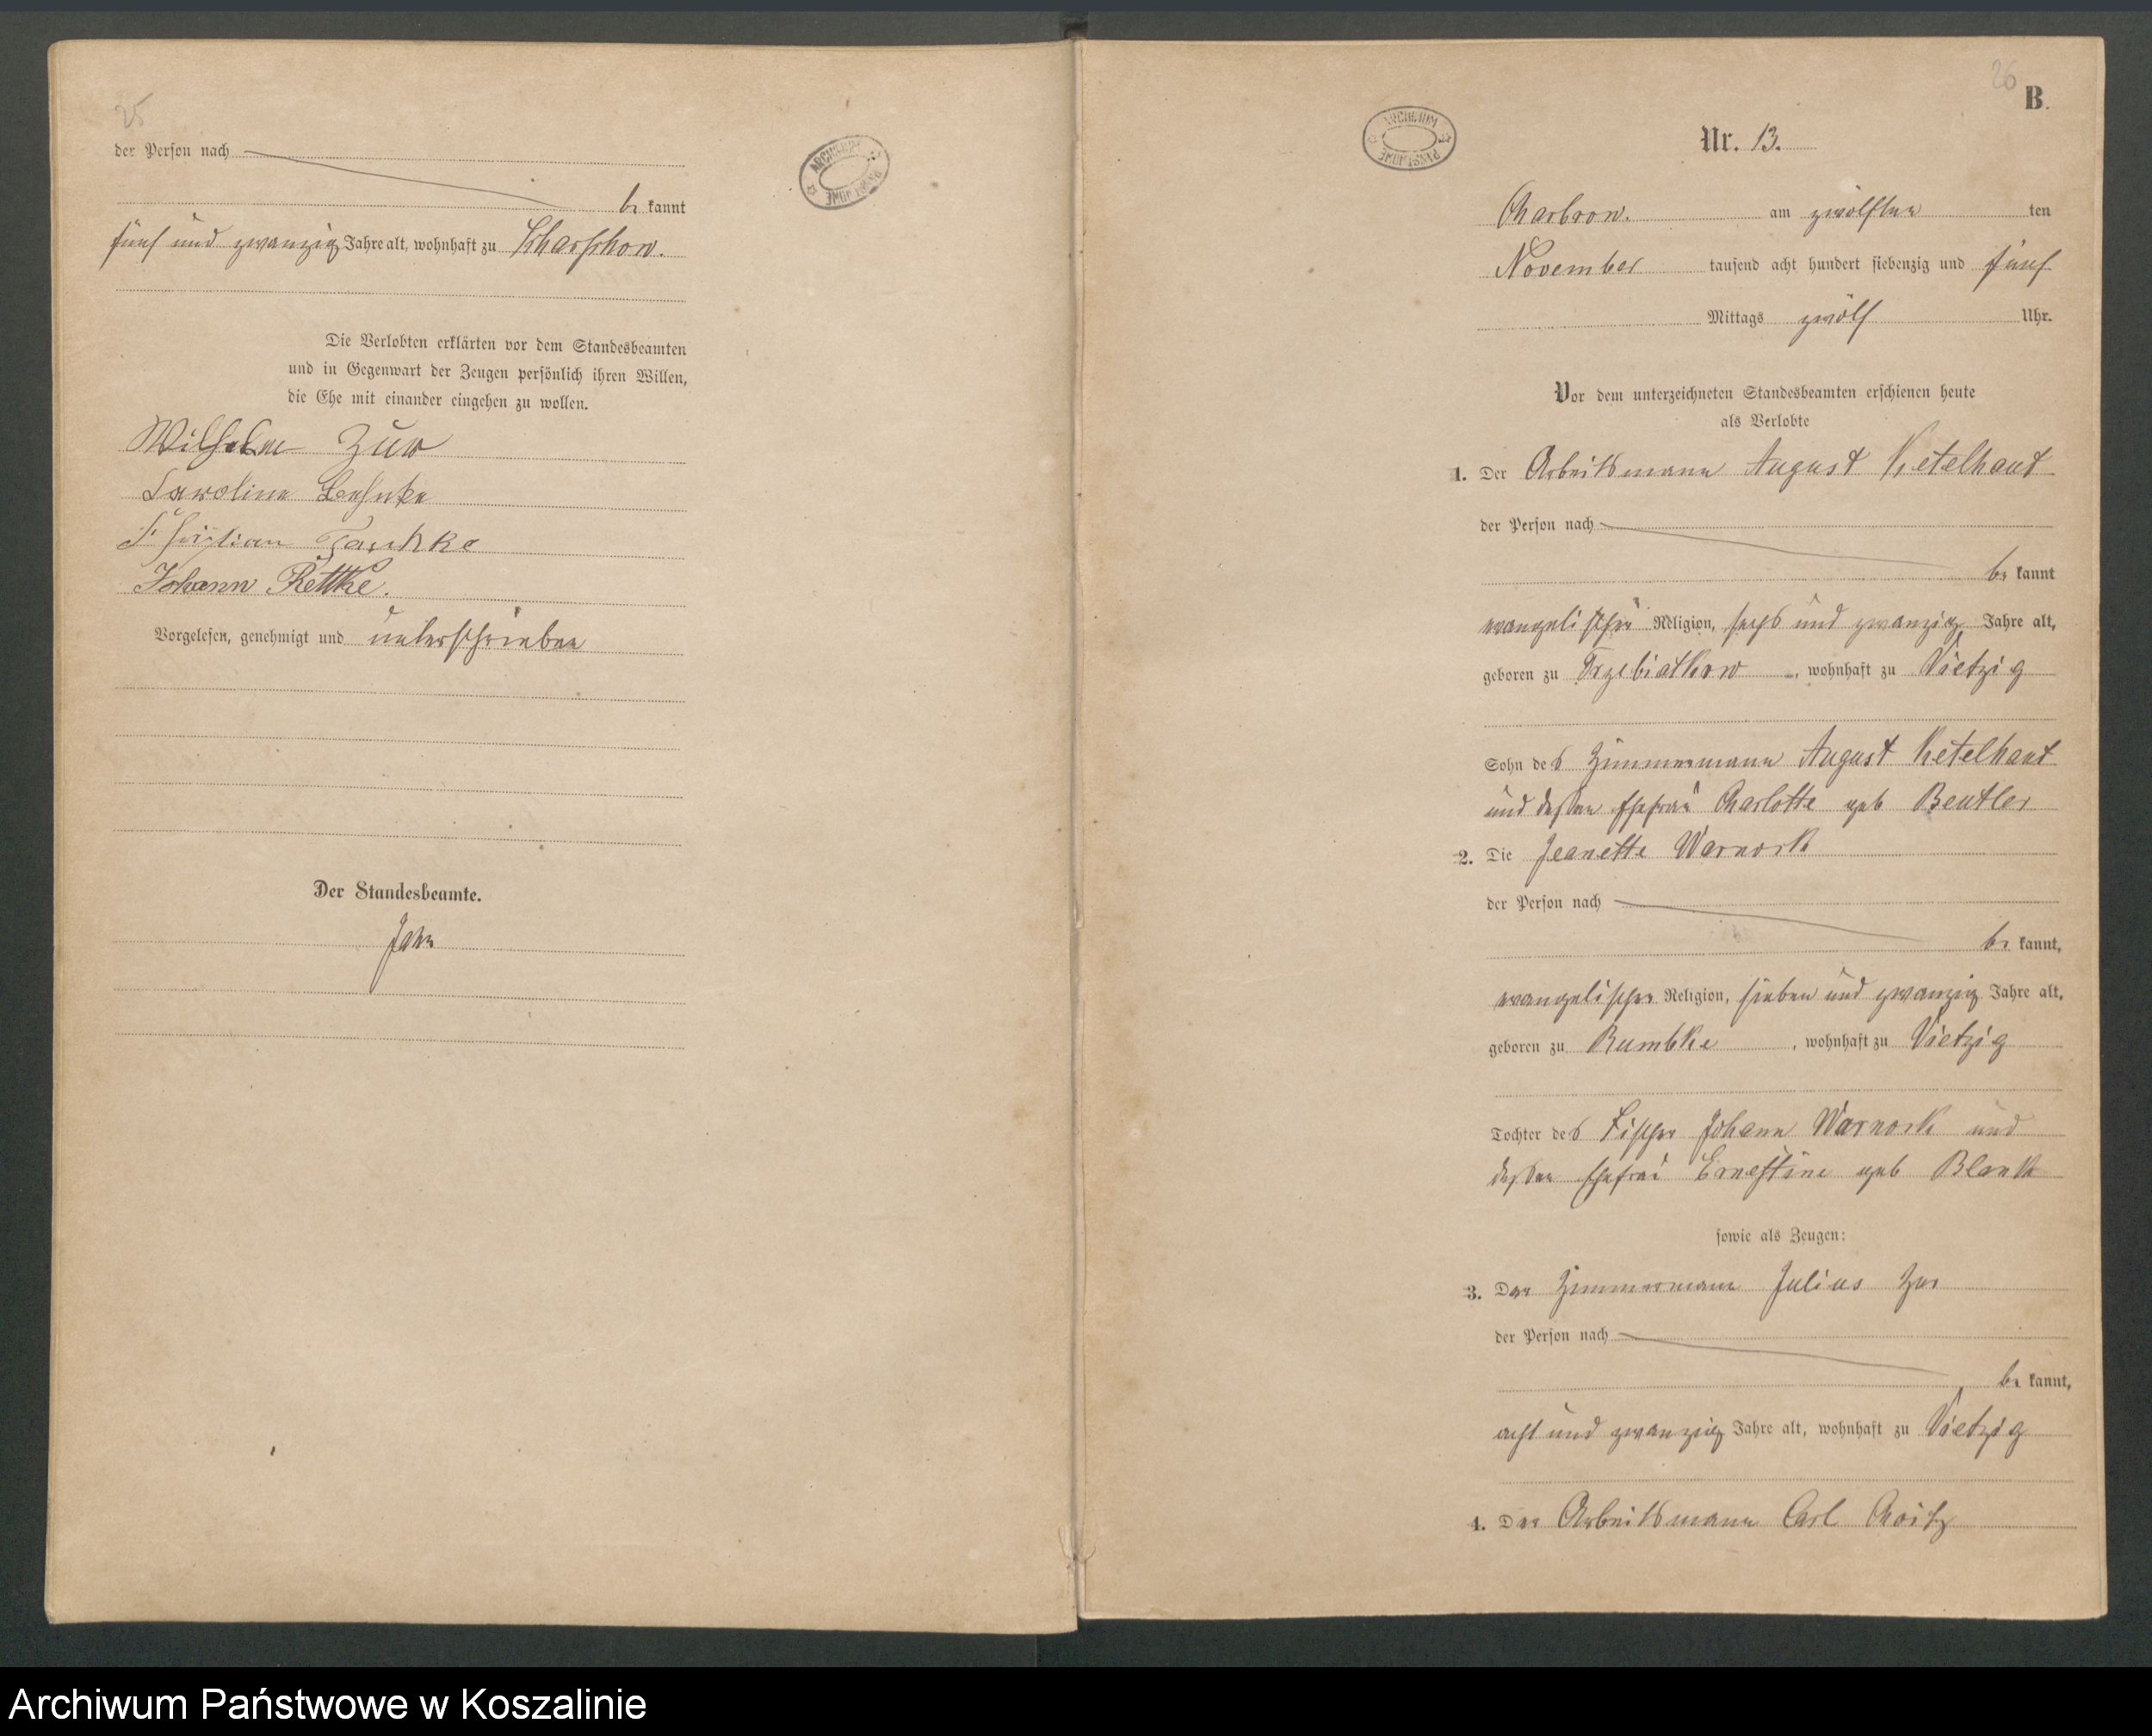 25
der Person nach
be kannt
fünf und zwanzig Jahre alt, wohnhaft zu Scharschow.
Die Verlobten erklärten vor dem Standesbeamten
und in Gegenwart der Zeugen persönlich ihren Willen,
die Ehe mit einander eingehen zu wollen.
Wilhelm Zuw
Caroline
Christian
Johann Rettke.
Vorgelesen, genehmigt und unterschrieben
Der Standesbeamte.
Jahn
ARCHIWUM PAŃSTWOWE
26
B.
ARCHIWUM PAŃSTWOWE
Nr. 13.
Charbrow. am zwölften ten
November tausend acht hundert siebenzig und fünf
Mittags zwölf Uhr.
Vor dem unterzeichneten Standesbeamten erschienen heute
als Verlobte
1. Der Arbeitsmann August Ketelhaut
der Person nach
be kannt
evangelischer Religion, sechs und zwanzig Jahre alt,
geboren zu Trzebiatkow, wohnhaft zu Vietzig
Sohn des Zimmermann August Ketelhaut
und dessen Ehefrau Charlotte geb Beutler
2. Die Jeanette Warnock
der Person nach
be kannt,
evangelischer Religion, sieben und zwanzig Jahre alt,
geboren zu Rumbke, wohnhaft zu Vietzig
Tochter des Fischer Johann Warnock und
dessen Ehefrau Ernestine geb Blank
sowie als Zeugen:
3. Der Zimmermann Julius Zur
der Person nach
be kannt,
acht und zwanzig Jahre alt, wohnhaft zu Vietzig
4. Der Arbeitsmann Carl Choitz
Archiwum Państwowe w Koszalinie